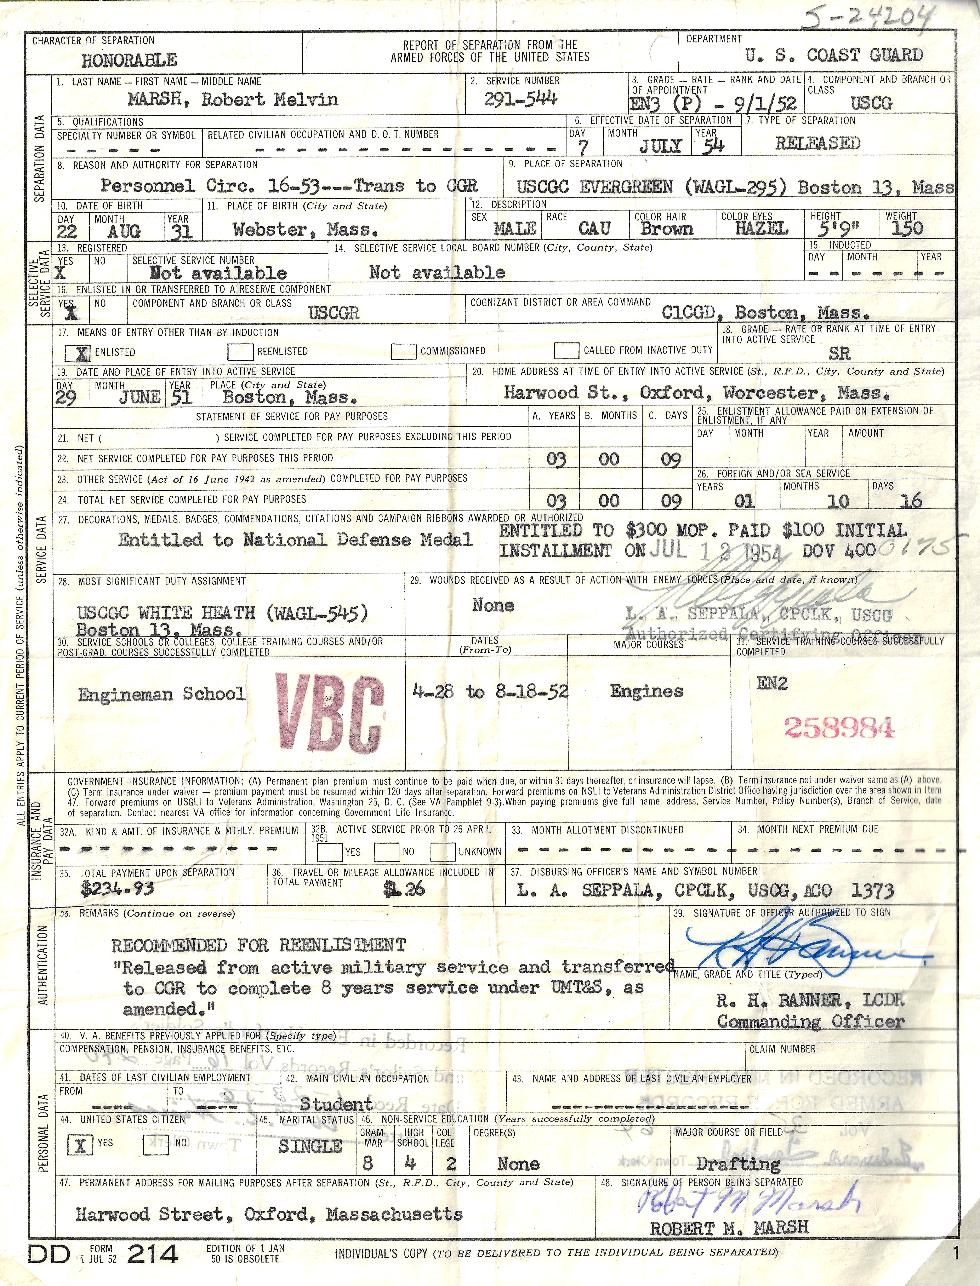 S-24204
CHARACTER OF SEPARATION
HONORABLE
REPORT OF SEPARATION FROM THE
ARMED FORCES OF THE UNITED STATES
DEPARTMENT
U. S. COAST GUARD
1. LAST NAME — FIRST NAME — MIDDLE NAME
MARSH, Robert Melvin
2. SERVICE NUMBER
291-544
3. GRADE — RATE — RANK AND DATE OF APPOINTMENT
EN3 (P) - 9/1/52
4. COMPONENT AND BRANCH OR CLASS
USCG
SEPARATION DATA
5. QUALIFICATIONS
SPECIALTY NUMBER OR SYMBOL
RELATED CIVILIAN OCCUPATION AND D. O. T. NUMBER
6. EFFECTIVE DATE OF SEPARATION
DAY MONTH YEAR
7 JULY 54
7. TYPE OF SEPARATION
RELEASED
8. REASON AND AUTHORITY FOR SEPARATION
Personnel Circ. 16-53---Trans to CGR
9. PLACE OF SEPARATION
USCGC EVERGREEN (WAGL-295) Boston 13, Mass
10. DATE OF BIRTH
DAY MONTH YEAR
22 AUG 31
11. PLACE OF BIRTH (City and State)
Webster, Mass.
12. DESCRIPTION
SEX RACE COLOR HAIR COLOR EYES HEIGHT WEIGHT
MALE CAU Brown HAZEL 5'9" 150
SELECTIVE SERVICE DATA
13. REGISTERED
YES NO
X
SELECTIVE SERVICE NUMBER
Not available
14. SELECTIVE SERVICE LOCAL BOARD NUMBER (City, County, State)
Not available
15. INDUCTED
DAY MONTH YEAR
16. ENLISTED IN OR TRANSFERRED TO A RESERVE COMPONENT
YES NO
X
COMPONENT AND BRANCH OR CLASS
USCGR
COGNIZANT DISTRICT OR AREA COMMAND
C1CGD, Boston, Mass.
17. MEANS OF ENTRY OTHER THAN BY INDUCTION
X ENLISTED REENLISTED COMMISSIONED CALLED FROM INACTIVE DUTY
18. GRADE — RATE OR RANK AT TIME OF ENTRY INTO ACTIVE SERVICE
SR
19. DATE AND PLACE OF ENTRY INTO ACTIVE SERVICE
DAY MONTH YEAR PLACE (City and State)
29 JUNE 51 Boston, Mass.
20. HOME ADDRESS AT TIME OF ENTRY INTO ACTIVE SERVICE (St., R.F.D., City, County and State)
Harwood St., Oxford, Worcester, Mass.
ALL ENTRIES APPLY TO CURRENT PERIOD OF SERVICE (unless otherwise indicated)
SERVICE DATA
STATEMENT OF SERVICE FOR PAY PURPOSES
A. YEARS B. MONTHS C. DAYS
21. NET ( ) SERVICE COMPLETED FOR PAY PURPOSES EXCLUDING THIS PERIOD
22. NET SERVICE COMPLETED FOR PAY PURPOSES THIS PERIOD
03 00 09
23. OTHER SERVICE (Act of 16 June 1942 as amended) COMPLETED FOR PAY PURPOSES
24. TOTAL NET SERVICE COMPLETED FOR PAY PURPOSES
03 00 09
25. ENLISTMENT ALLOWANCE PAID ON EXTENSION OF ENLISTMENT, IF ANY
DAY MONTH YEAR AMOUNT
26. FOREIGN AND/OR SEA SERVICE
YEARS MONTHS DAYS
01 10 16
27. DECORATIONS, MEDALS, BADGES, COMMENDATIONS, CITATIONS AND CAMPAIGN RIBBONS AWARDED OR AUTHORIZED
Entitled to National Defense Medal
ENTITLED TO $300 MOP. PAID $100 INITIAL
INSTALLMENT ON JUL 12 1954 DOV 400 0175
28. MOST SIGNIFICANT DUTY ASSIGNMENT
USCGC WHITE HEATH (WAGL-545)
Boston 13, Mass.
29. WOUNDS RECEIVED AS A RESULT OF ACTION WITH ENEMY FORCES (Place and date, if known)
None
L. A. SEPPALA, CPCLK, USCG
Authorized Certifying Officer
30. SERVICE SCHOOLS OR COLLEGES, COLLEGE TRAINING COURSES AND/OR
POST-GRAD. COURSES SUCCESSFULLY COMPLETED
DATES
(From-To)
MAJOR COURSES
31. SERVICE TRAINING COURSES SUCCESSFULLY COMPLETED
Engineman School
VBC
4-28 to 8-18-52
Engines
EN2
258984
INSURANCE AND PAY DATA
GOVERNMENT INSURANCE INFORMATION: (A) Permanent plan premium must continue to be paid when due, or within 31 days thereafter, or insurance will lapse. (B) Term insurance not under waiver same as (A) above.
(C) Term Insurance under waiver — premium payment must be resumed within 120 days after separation. Forward premiums on NSLI to Veterans Administration District Office having jurisdiction over the area shown in Item
47. Forward premiums on USGLI to Veterans Administration, Washington 25, D. C. (See VA Pamphlet 9-3). When paying premiums give full name, address, Service Number, Policy Number(s), Branch of Service, date
of separation. Contact nearest VA office for information concerning Government Life Insurance.
32A. KIND & AMT. OF INSURANCE & MTHLY. PREMIUM
32B. ACTIVE SERVICE PRIOR TO 26 APRIL 1951
YES NO UNKNOWN
33. MONTH ALLOTMENT DISCONTINUED
34. MONTH NEXT PREMIUM DUE
35. TOTAL PAYMENT UPON SEPARATION
$234.93
36. TRAVEL OR MILEAGE ALLOWANCE INCLUDED IN TOTAL PAYMENT
37. DISBURSING OFFICER'S NAME AND SYMBOL NUMBER
L. A. SEPPALA, CPCLK, USCG, ACO 1373
AUTHENTICATION
38. REMARKS (Continue on reverse)
RECOMMENDED FOR REENLISTMENT
"Released from active military service and transferred
to CGR to complete 8 years service under UMT&S, as
amended."
39. SIGNATURE OF OFFICER AUTHORIZED TO SIGN
R H Banner
NAME, GRADE AND TITLE (Typed)
R. H. BANNER, LCDR
Commanding Officer
PERSONAL DATA
40. V. A. BENEFITS PREVIOUSLY APPLIED FOR (Specify type)
COMPENSATION, PENSION, INSURANCE BENEFITS, ETC.
CLAIM NUMBER
41. DATES OF LAST CIVILIAN EMPLOYMENT
FROM TO
42. MAIN CIVILIAN OCCUPATION
Student
43. NAME AND ADDRESS OF LAST CIVILIAN EMPLOYER
44. UNITED STATES CITIZEN
X YES NO
45. MARITAL STATUS
SINGLE
46. NON-SERVICE EDUCATION (Years successfully completed)
GRAMMAR HIGH SCHOOL COLLEGE DEGREE(S) MAJOR COURSE OR FIELD
8 4 2 None Drafting
47. PERMANENT ADDRESS FOR MAILING PURPOSES AFTER SEPARATION (St., R.F.D., City, County and State)
Harwood Street, Oxford, Massachusetts
48. SIGNATURE OF PERSON BEING SEPARATED
Robert M Marsh
ROBERT M. MARSH
DD FORM 1 JUL 52 214
EDITION OF 1 JAN 50 IS OBSOLETE
INDIVIDUAL'S COPY (TO BE DELIVERED TO THE INDIVIDUAL BEING SEPARATED)
1